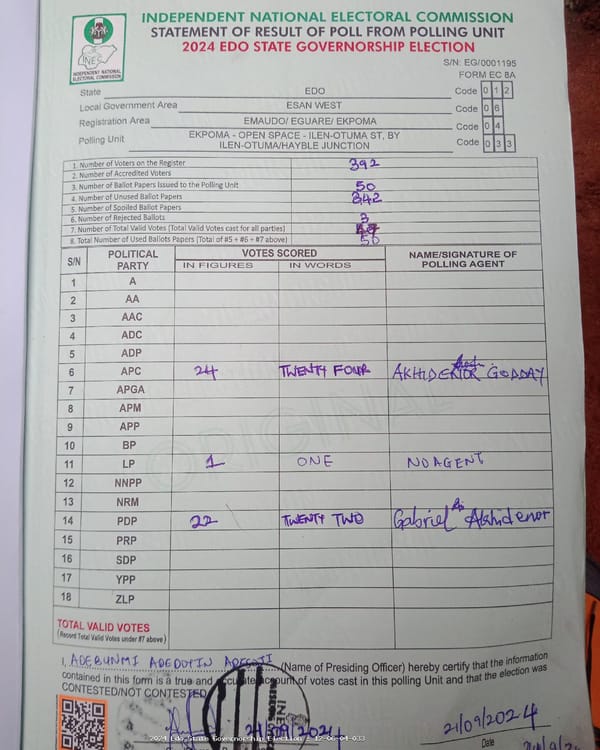 INDEPENDENT NATIONAL ELECTORAL COMMISSION
STATEMENT OF RESULT OF POLL FROM POLLING UNIT
2024 EDO STATE GOVERNORSHIP ELECTION
INEC
INDEPENDENT NATIONAL
ELECTORAL COMMISSION
S/N: EG/0001195
FORM EC 8A
State EDO Code 0 1 2
Local Government Area ESAN WEST Code 0 6
Registration Area EMAUDO/ EGUARE/ EKPOMA Code 0 4
Polling Unit EKPOMA - OPEN SPACE - ILEN-OTUMA ST, BY ILEN-OTUMA/HAYBLE JUNCTION Code 0 3 3
1. Number of Voters on the Register 392
2. Number of Accredited Voters
3. Number of Ballot Papers Issued to the Polling Unit 50
4. Number of Unused Ballot Papers 342
5. Number of Spoiled Ballot Papers
6. Number of Rejected Ballots 3
7. Number of Total Valid Votes (Total Valid Votes cast for all parties) 47
8. Total Number of Used Ballots Papers (Total of #5 + #6 + #7 above) 50
S/N POLITICAL PARTY VOTES SCORED NAME/SIGNATURE OF POLLING AGENT
IN FIGURES IN WORDS
1 A
2 AA
3 AAC
4 ADC
5 ADP
6 APC 24 TWENTY FOUR GODDAY
7 APGA
8 APM
9 APP
10 BP
11 LP 1 ONE NO AGENT
12 NNPP
13 NRM
14 PDP 22 TWENTY TWO Gabriel Akhidenor
15 PRP
16 SDP
17 YPP
18 ZLP
ORIGINAL
TOTAL VALID VOTES
(Record Total Valid Votes under #7 above)
I, ADEBUNMI ADEDOYIN (Name of Presiding Officer) hereby certify that the information
contained in this form is a true and accurate account of votes cast in this polling Unit and that the election was
CONTESTED/NOT CONTESTED
21/09/2024
21/09/2024
Date
2024 Edo State Governorship Election - 12-06-04-033